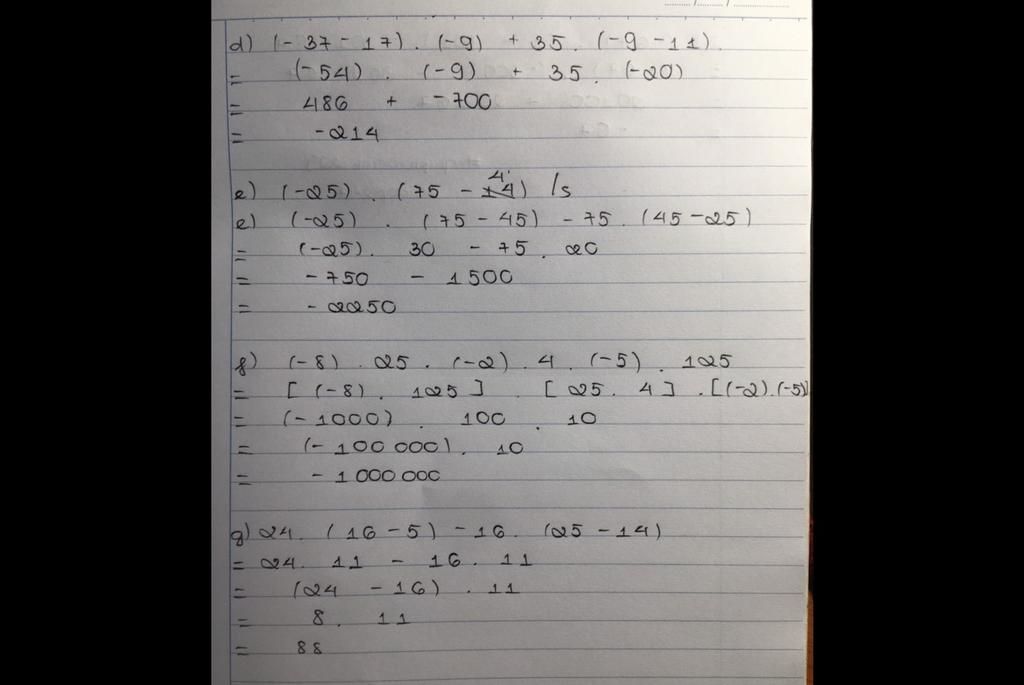 d) (-37-17) . (-9) + 35 . (-9-11)
= (-54) . (-9) + 35 . (-20)
= 486 + -700
= -214
e) (-25) . (75 - 4) /s
e) (-25) . (75-45) - 75 . (45-25)
= (-25) . 30 - 75 . 20
= -750 - 1500
= -2250
f) (-8) . 25 . (-2) . 4 . (-5) . 125
= [(-8) . 125] . [25 . 4] . [(-2).(-5)]
= (-1000) . 100 . 10
= (-100 000) . 10
= -1 000 000
g) 24 . (16-5) - 16 . (25-14)
= 24 . 11 - 16 . 11
= (24 - 16) . 11
= 8 . 11
= 88